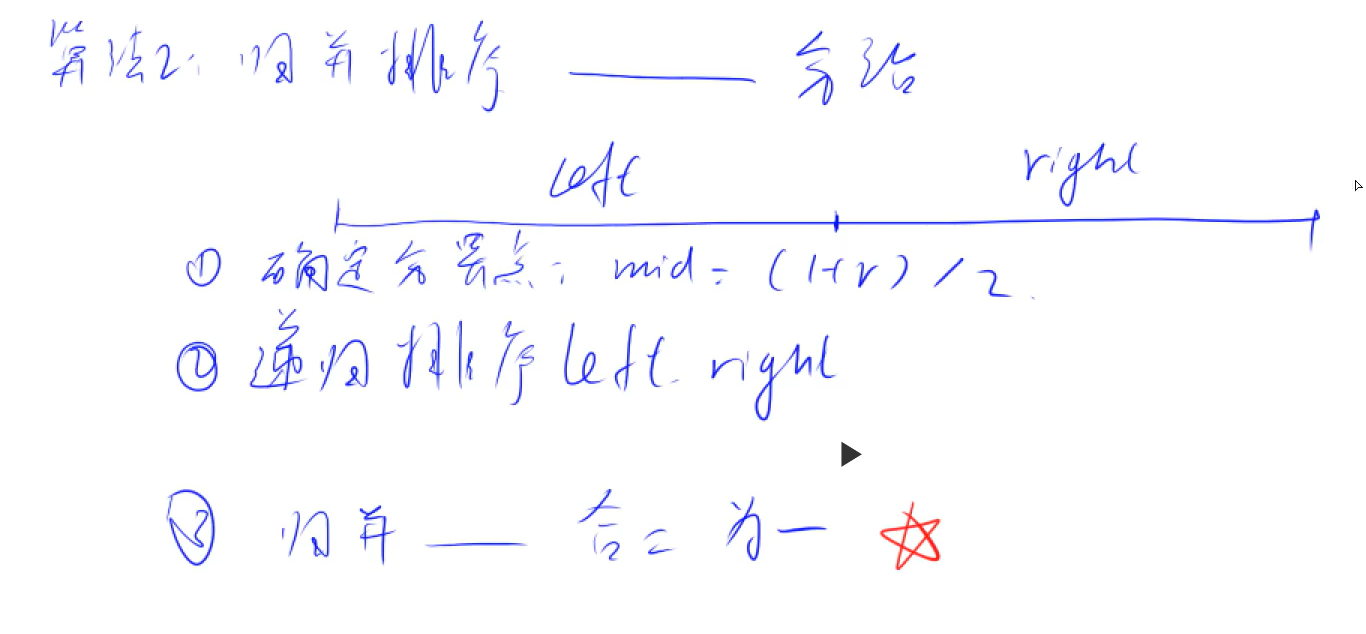 算法2: 归并排序 —— 分治
left right
① 确定分界点: mid = (l+r)/2.
② 递归排序left. right
③ 归并 —— 合二为一